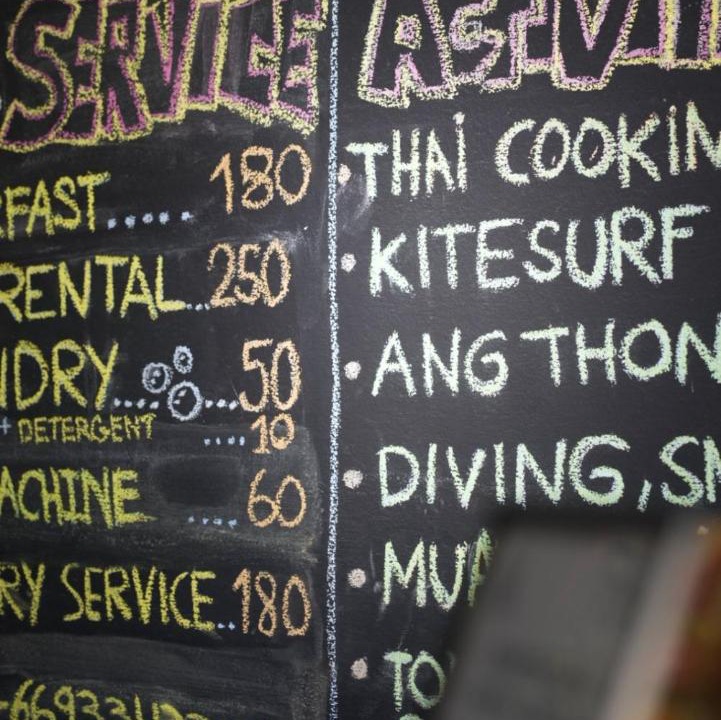 SERVICE
RFAST...... 180
RENTAL... 250
NDRY........ 50
+ DETERGENT .... 10
ACHINE .... 60
RY SERVICE.. 180
THAI COOKIN
KITESURF
ANG THON
DIVING, SN
MUA
TO